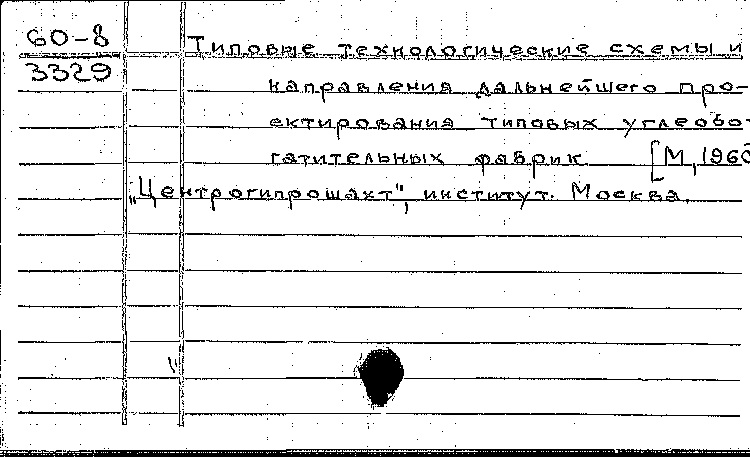 60-8
3329
Типовые технологические схемы и
направления дальнейшего про-
ектирования типовых углеобо-
гатительных фабрик [М, 1960
„Центрогипрошахт", институт. Москва.